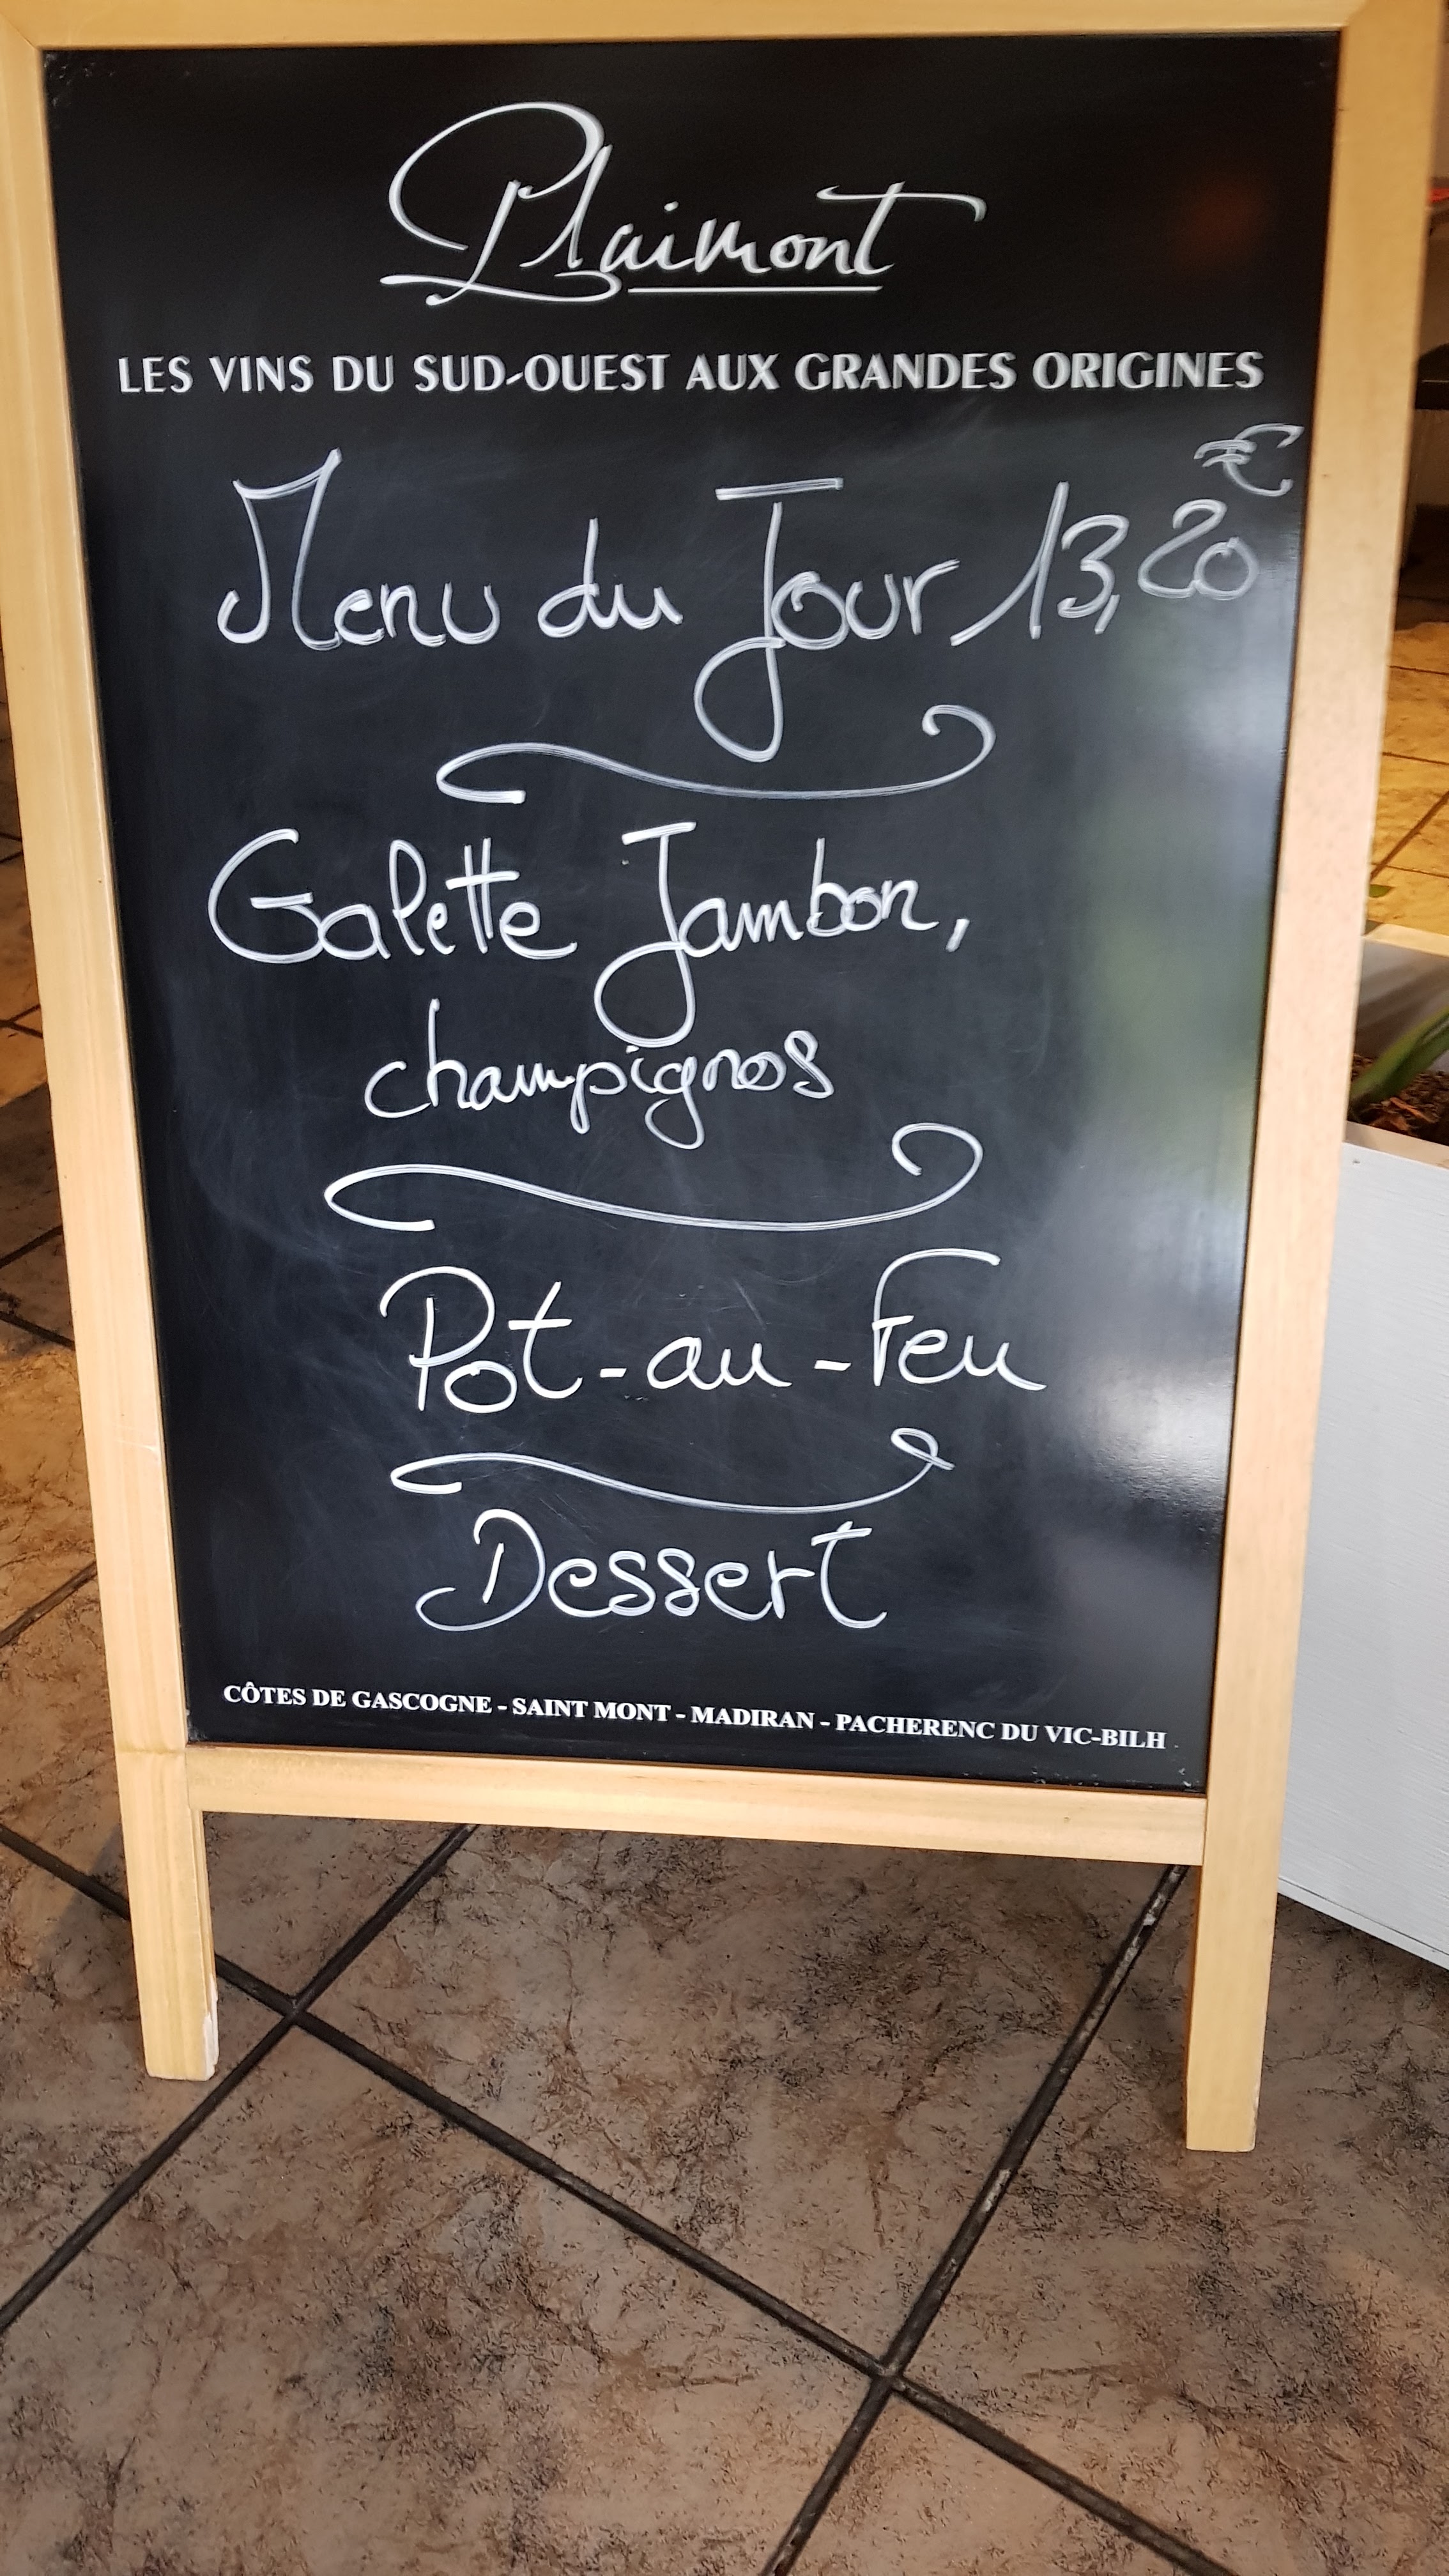 Plaimont
LES VINS DU SUD-OUEST AUX GRANDES ORIGINES
Menu du Jour 13,20€
Galette Jambon,
champignos
Pot-au-Feu
Dessert
CÔTES DE GASCOGNE - SAINT MONT - MADIRAN - PACHERENC DU VIC-BILH